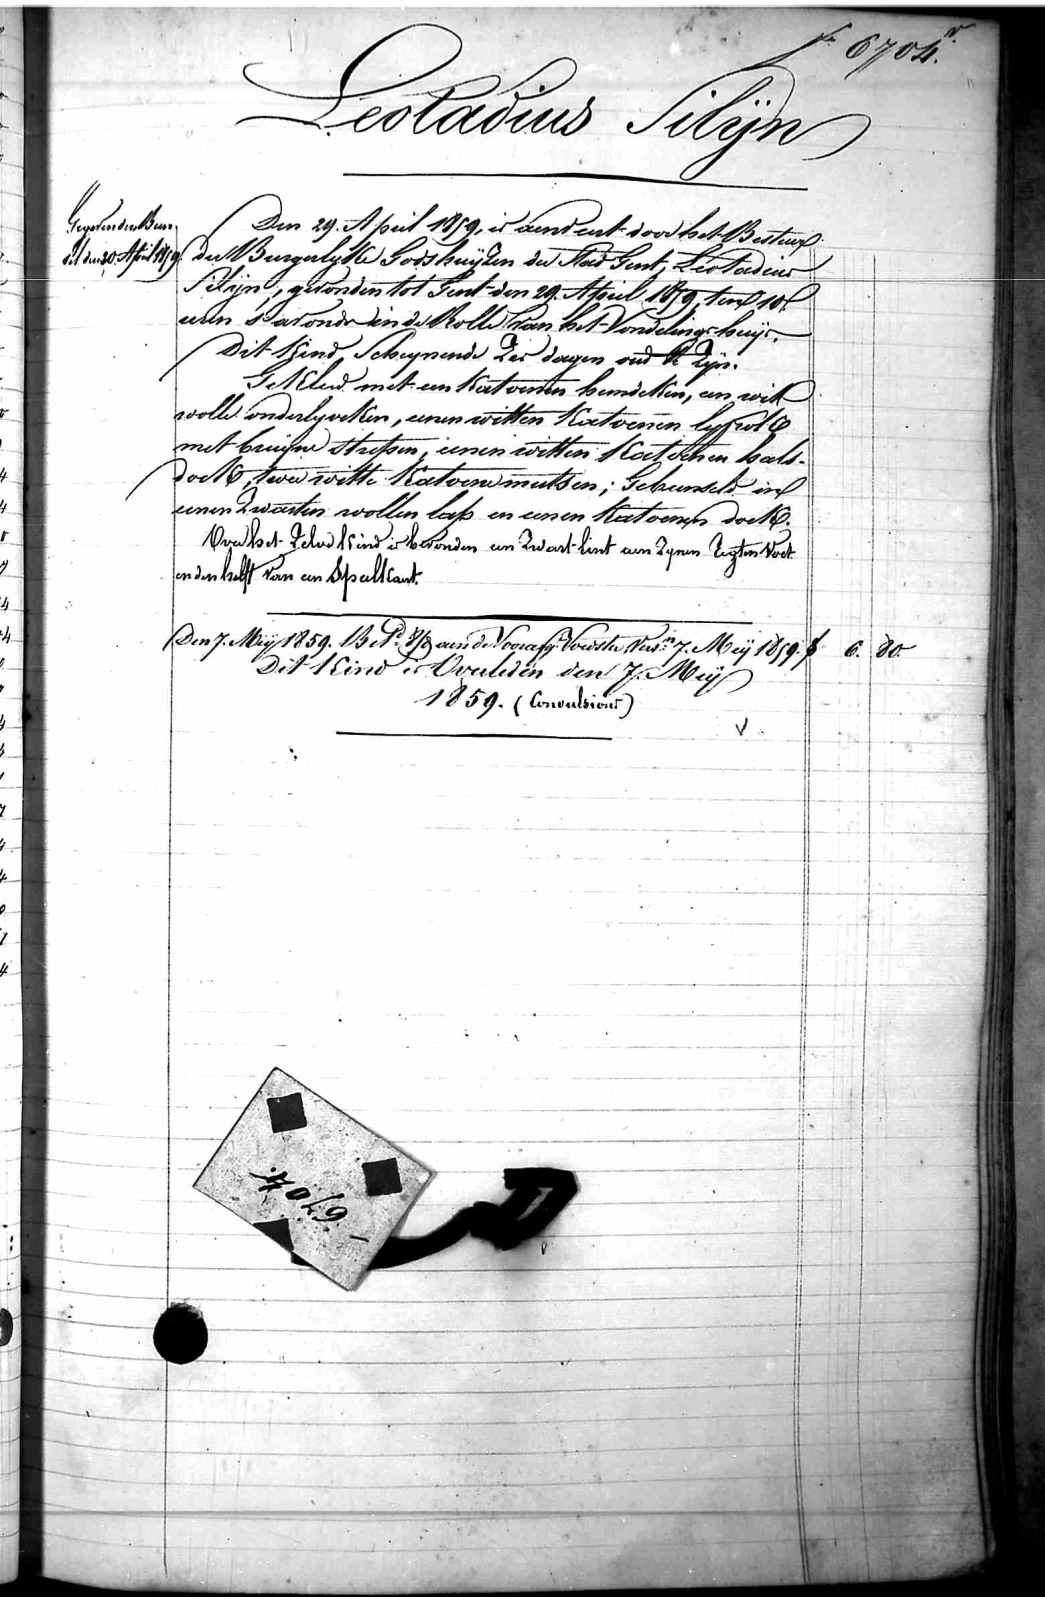 f. 6704.v.
Leotadius Silijn
Gegeven den Bun-
del den 30. April 1859.
Den 29. April 1859, is aenveert door het Bestuer
der Burgerlijke Godshuijzen der Stad Gent, Leotadius
Silijn, gevonden tot Gent den 29. April 1859, ten 10
uren s'avonds in de Rolle van het Vondelingshuijs.
Dit Kind, Scheynende Zes dagen oud te Zijn.
Gekleed met een Katoenen hemdeken, een wit
wolle onderlyveken, eenen witten Katoenen lyfrok
met bruyne strepen, eenen witten Katoenen hals-
doek, twee witte Katoene mutsen; Gebunseld in
eenen Zwarten wollen lap en eenen Katoenen doek.
Over het Zelve Kind is bevonden een Zwart lint aen Zynen regten Voet
en den helft van een Speelkaart.
Den 7. Meij 1859. Bet.d aen de Voorafg: Voedster 7. Meij 1859. f 6. 80.
Dit Kind is Overleden den 7. Meij
1859. (Convulsions)
V
6704.